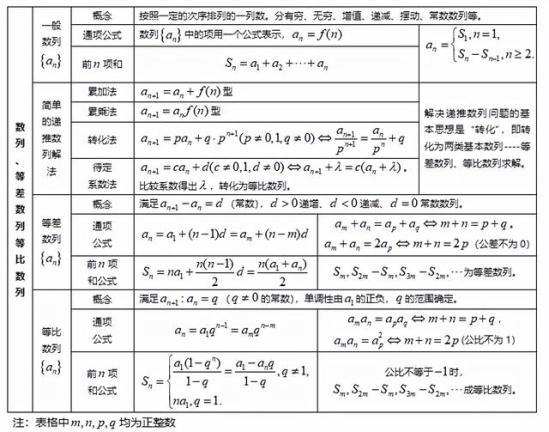 数列、等差数列等比数列
一般数列{aₙ}
概念
按照一定的次序排列的一列数。分有穷、无穷、增值、递减、摆动、常数数列等。
通项公式
数列{aₙ}中的项用一个公式表示，aₙ = f(n)
前n项和
Sₙ = a₁ + a₂ + ⋯ + aₙ
aₙ = { S₁, n = 1,
Sₙ − Sₙ₋₁, n ≥ 2.
简单的递推数列解法
累加法
aₙ₊₁ = aₙ + f(n)型
累乘法
aₙ₊₁ = aₙf(n)型
转化法
aₙ₊₁ = paₙ + q·pⁿ⁺¹(p ≠ 0,1, q ≠ 0) ⇔ aₙ₊₁/pⁿ⁺¹ = aₙ/pⁿ + q
待定系数法
aₙ₊₁ = caₙ + d(c ≠ 0,1, d ≠ 0) ⇔ aₙ₊₁ + λ = c(aₙ + λ).
比较系数得出λ，转化为等比数列。
解决递推数列问题的基
本思想是“转化”，即转
化为两类基本数列----等
差数列、等比数列求解。
等差数列{aₙ}
概念
满足aₙ₊₁ − aₙ = d（常数），d > 0递增、d < 0递减、d = 0常数数列。
通项公式
aₙ = a₁ + (n − 1)d = aₘ + (n − m)d
aₘ + aₙ = aₚ + a_q ⇔ m + n = p + q。
aₘ + aₙ = 2aₚ ⇔ m + n = 2p（公差不为0）
前n项和公式
Sₙ = na₁ + n(n−1)/2 d = n(a₁ + aₙ)/2
Sₘ, S₂ₘ − Sₘ, S₃ₘ − S₂ₘ, ⋯为等差数列。
等比数列{aₙ}
概念
满足aₙ₊₁ : aₙ = q（q ≠ 0的常数），单调性由a₁的正负，q的范围确定。
通项公式
aₙ = a₁qⁿ⁻¹ = aₘqⁿ⁻ᵐ
aₘaₙ = aₚa_q ⇔ m + n = p + q，
aₘaₙ = aₚ² ⇔ m + n = 2p（公比不为1）
前n项和公式
Sₙ = { a₁(1 − qⁿ)/(1 − q) = (a₁ − aₙq)/(1 − q), q ≠ 1,
na₁, q = 1.
公比不等于−1时，
Sₘ, S₂ₘ − Sₘ, S₃ₘ − S₂ₘ, ⋯成等比数列。
注：表格中m, n, p, q均为正整数